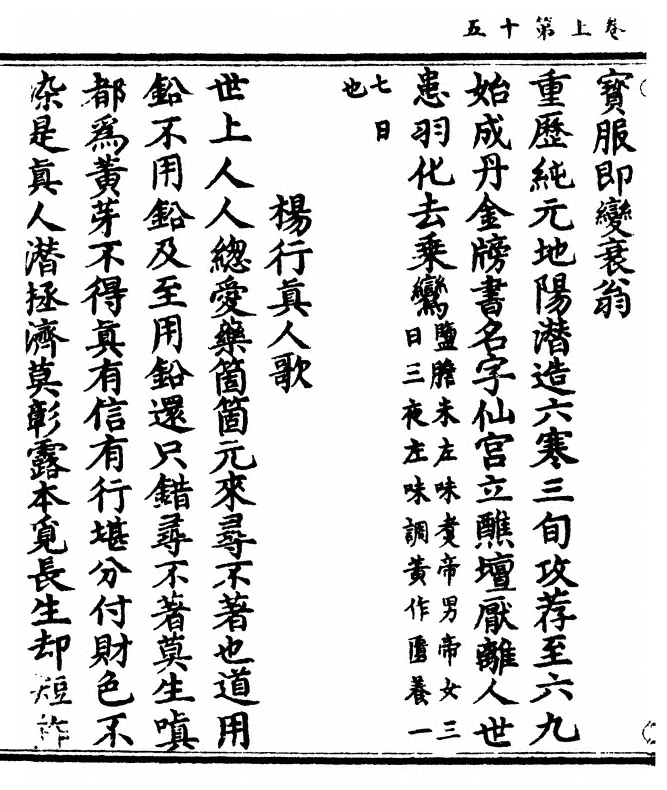 卷上第十五
寳服即變衰翁
重歷純元地陽潜造六寒三旬攻荐至六九
始成丹金牓書名字仙宫立醮壇厭離人世
患羽化去乘鸞鹽膽朱左味煑帝男帝女三
日三夜左味調黄作匱養一
七日
也
楊行真人歌
世上人人總愛藥箇箇元來尋不著也道用
鉛不用鉛及至用鉛還只錯尋不著莫生嗔
都爲黄芽不得真有信有行堪分付財色不
染是真人潜拯濟莫彰露本覓長生却短